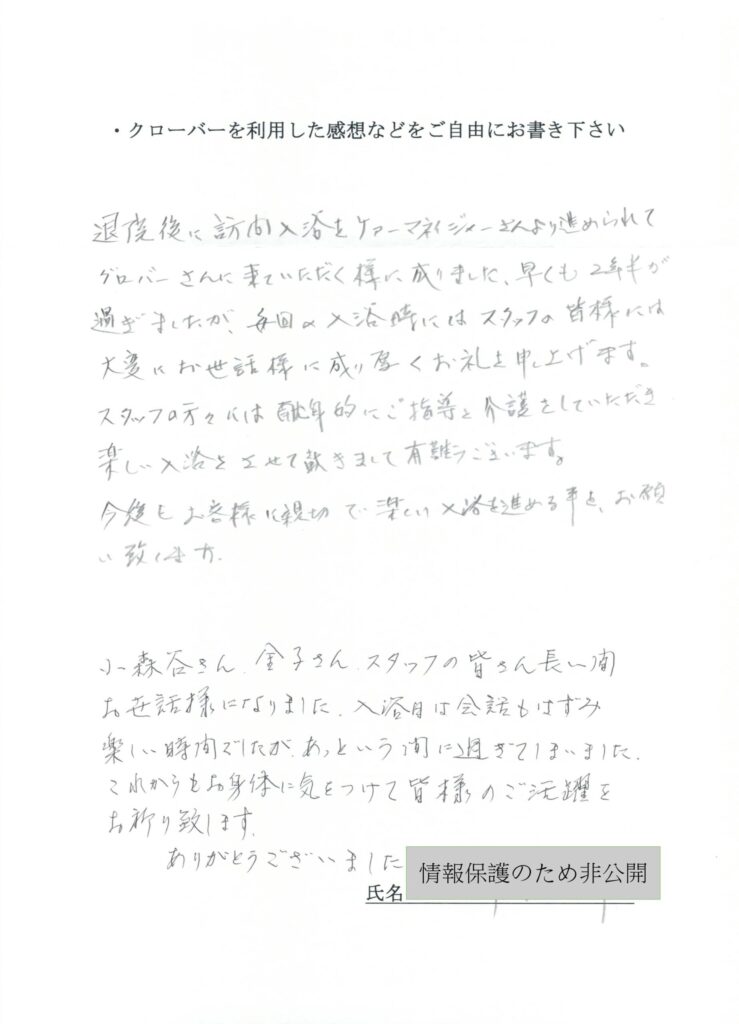 ・クローバーを利用した感想などをご自由にお書き下さい
退度後に訪問入浴をケアーマネイジャーさんより進められて
グロバーさんに来ていただく様に成りました、早くも2年半が
過ぎましたが、毎回の入浴時にはスタッフの皆様には
大変にお世話様に成り厚くお礼を申し上げます。
スタッフの方々には献身的にご指導と介護をしていただき
楽しい入浴をさせて戴きまして有難うございます。
今後もお客様に親切で楽しい入浴を進める事を、お願
い致します.
小森谷さん、金子さん、スタッフの皆さん長い間
お世話様になりました、入浴日は会話もはずみ
楽しい時間でしたが、あっという間に過ぎてしまいました.
これからもお身体に気をつけて皆様のご活躍を
お祈り致します.
ありがとうございました
氏名
情報保護のため非公開